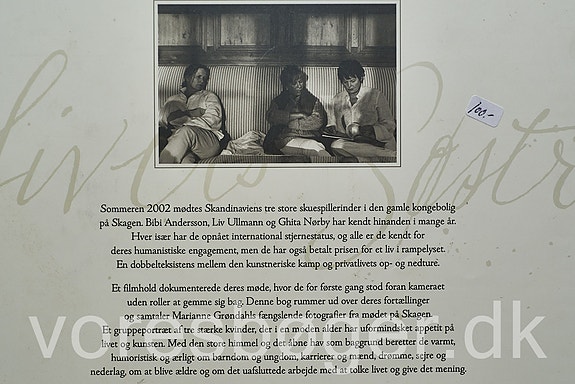 100.-
Livets Søstre
Sommeren 2002 mødtes Skandinaviens tre store skuespillerinder i den gamle kongebolig
på Skagen. Bibi Andersson, Liv Ullmann og Ghita Nørby har kendt hinanden i mange år.
Hver især har de opnået international stjernestatus, og alle er de kendt for
deres humanistiske engagement, men de har også betalt prisen for et liv i rampelyset.
En dobbelteksistens mellem den kunstneriske kamp og privatlivets op- og nedture.
Et filmhold dokumenterede deres møde, hvor de for første gang stod foran kameraet
uden roller at gemme sig bag. Denne bog rummer ud over deres fortællinger
og samtaler Marianne Grøndahls fængslende fotografier fra mødet på Skagen.
Et gruppeportræt af tre stærke kvinder, der i en moden alder har uformindsket appetit på
livet og kunsten. Med den store himmel og det åbne hav som baggrund beretter de varmt,
humoristisk og ærligt om barndom og ungdom, karrierer og mænd, drømme, sejre og
nederlag, om at blive ældre og om det uafsluttede arbejde med at tolke livet og give det mening.